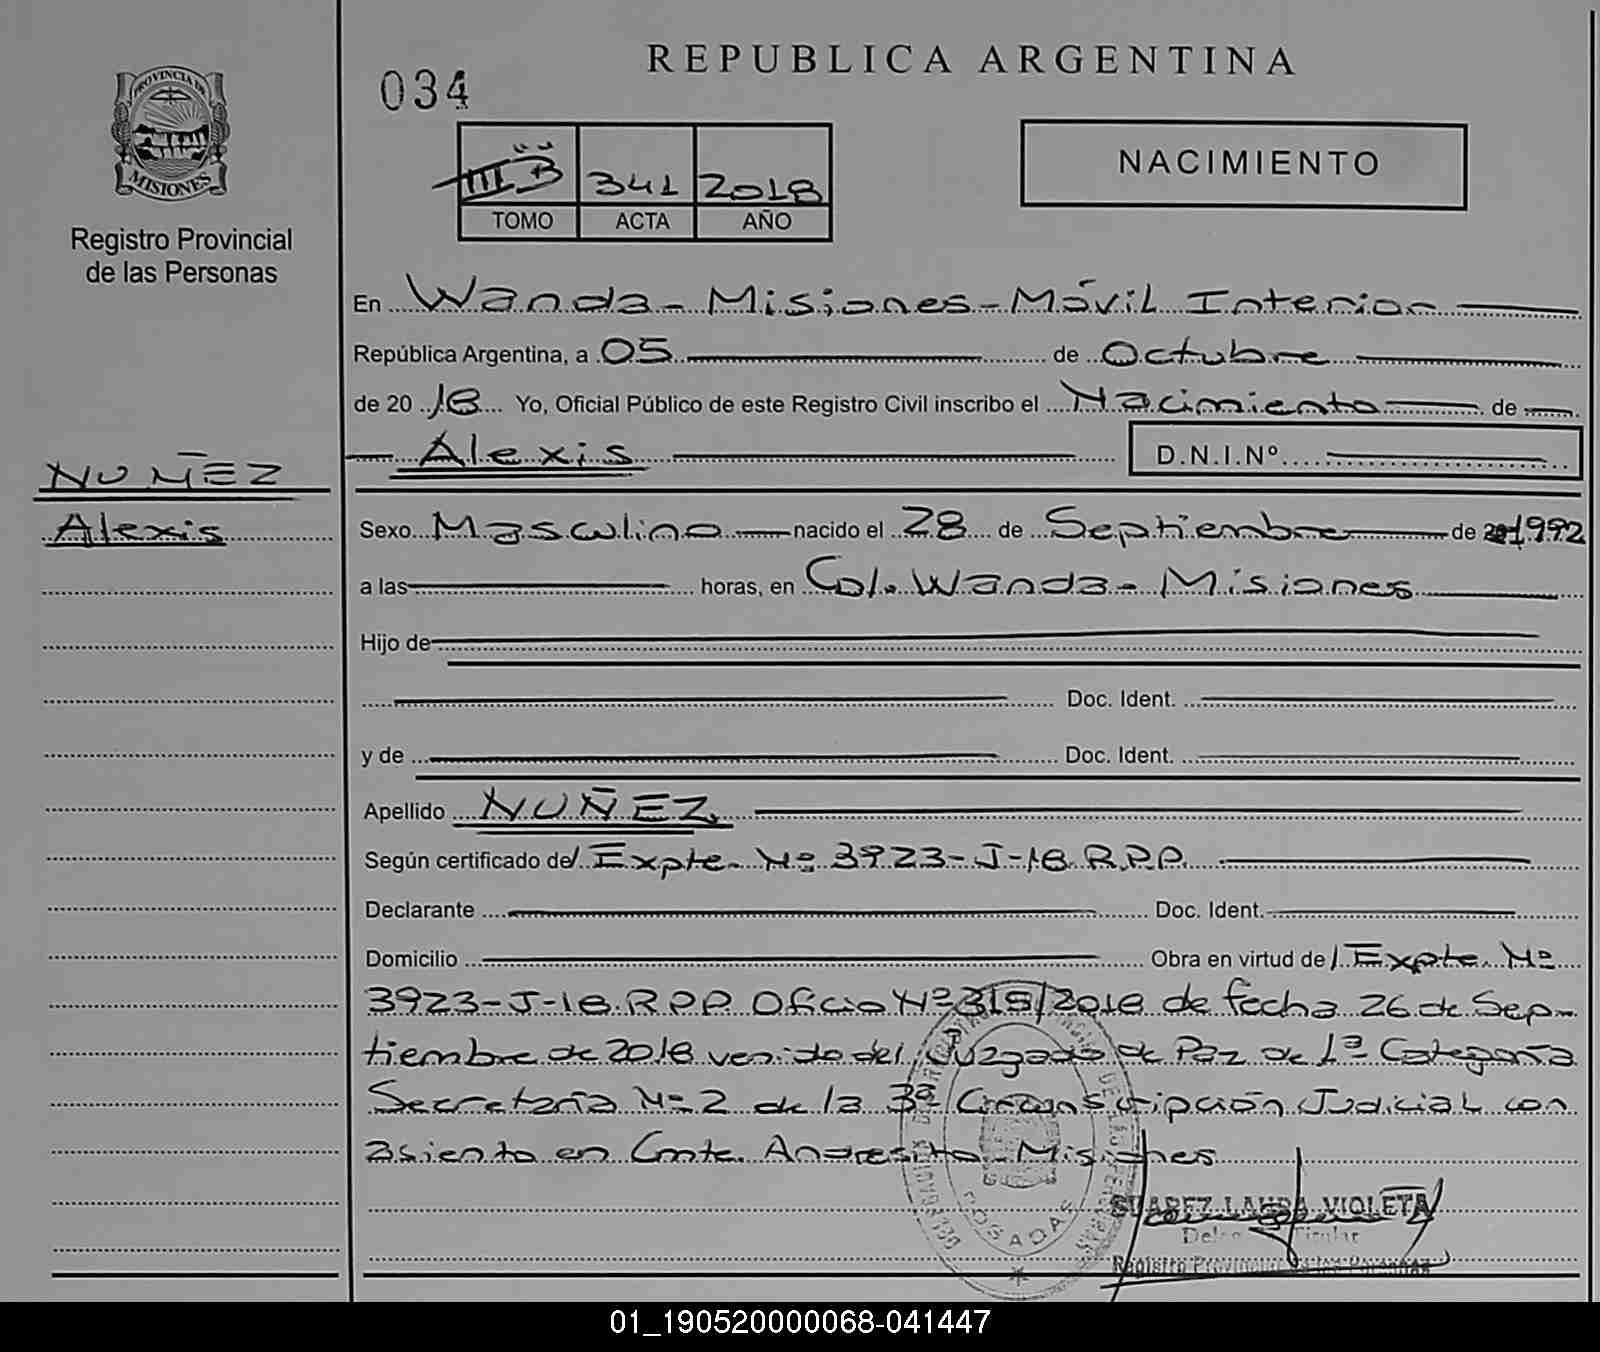 PROVINCIA DE
MISIONES
Registro Provincial
de las Personas
NUÑEZ
Alexis
034
REPUBLICA ARGENTINA
III B 341 2018
TOMO ACTA AÑO
NACIMIENTO
En Wanda - Misiones - Móvil Interior
República Argentina, a 05 de Octubre
de 2018 Yo, Oficial Público de este Registro Civil inscribo el Nacimiento de
Alexis D.N.I.Nº
Sexo Masculino nacido el 28 de Septiembre de 1992
a las horas, en Col. Wanda - Misiones
Hijo de
Doc. Ident.
y de Doc. Ident.
Apellido NUÑEZ
Según certificado de/ Expte. Nº 3923-J-18 R.P.P.
Declarante Doc. Ident.
Domicilio Obra en virtud de/ Expte. Nº
3923-J-18 R.P.P. Oficio Nº 318/2018 de fecha 26 de Sep-
tiembre de 2018 venido del Juzgado de Paz de 1ª Categoría
Secretaría Nº 2 de la 3ª Circunscripción Judicial con
asiento en Cmte. Andresito - Misiones
POSADAS
SUAREZ LAURA VIOLETA
Titular
Registro Provincial de las Personas
01_190520000068-041447